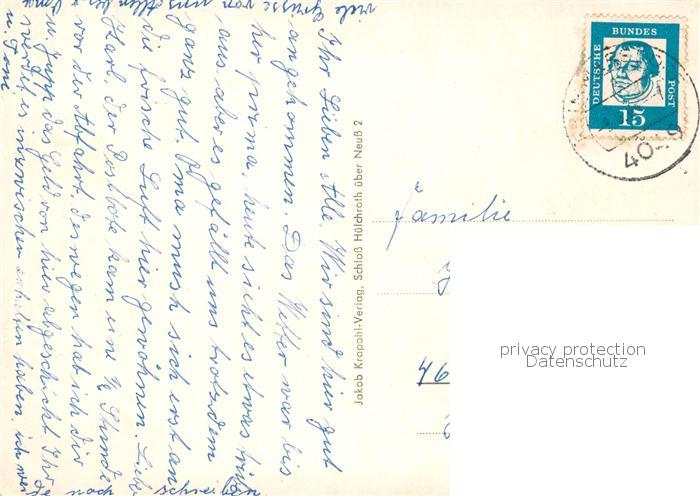 Ihr Lieben Alle. Wir sind hier gut
angekommen. Das Wetter war bis
her prima, heute sieht es etwas trüb
aus aber es gefällt uns trotzdem
ganz gut. Oma muss sich erst an
die frische Luft hier gewöhnen. Lieber
Karl, der Postbote kam eine ½ Stunde
vor der Abfahrt, deswegen hab ich dir
u. Jupp das Geld von hier abgeschickt Ihr
werdet es inzwischen erhalten haben, ich
noch schreiben
viele Grüsse von uns Allen
u. Toni
Jakob Krapohl-Verlag, Schloß Hülchrath über Neuß 2
DEUTSCHE BUNDES POST
15
Familie
46
privacy protection
Datenschutz